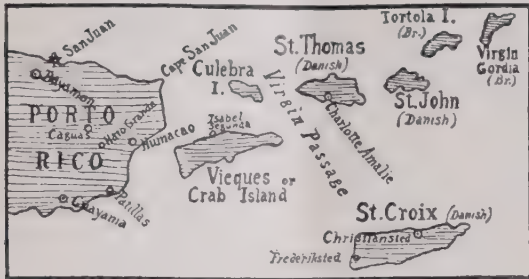 San Juan
Bayamon
Cape San Juan
PORTO
RICO
Caguas
Hato Grande
Humacao
Guayama
Patillas
Culebra
I.
Isabel
Segunda
Vieques or
Crab Island
Virgin Passage
St. Thomas
(Danish)
Charlotte Amalie
St. John
(Danish)
Tortola I.
(Br.)
Virgin
Gordia
(Br.)
St. Croix (Danish)
Christiansted
Frederiksted